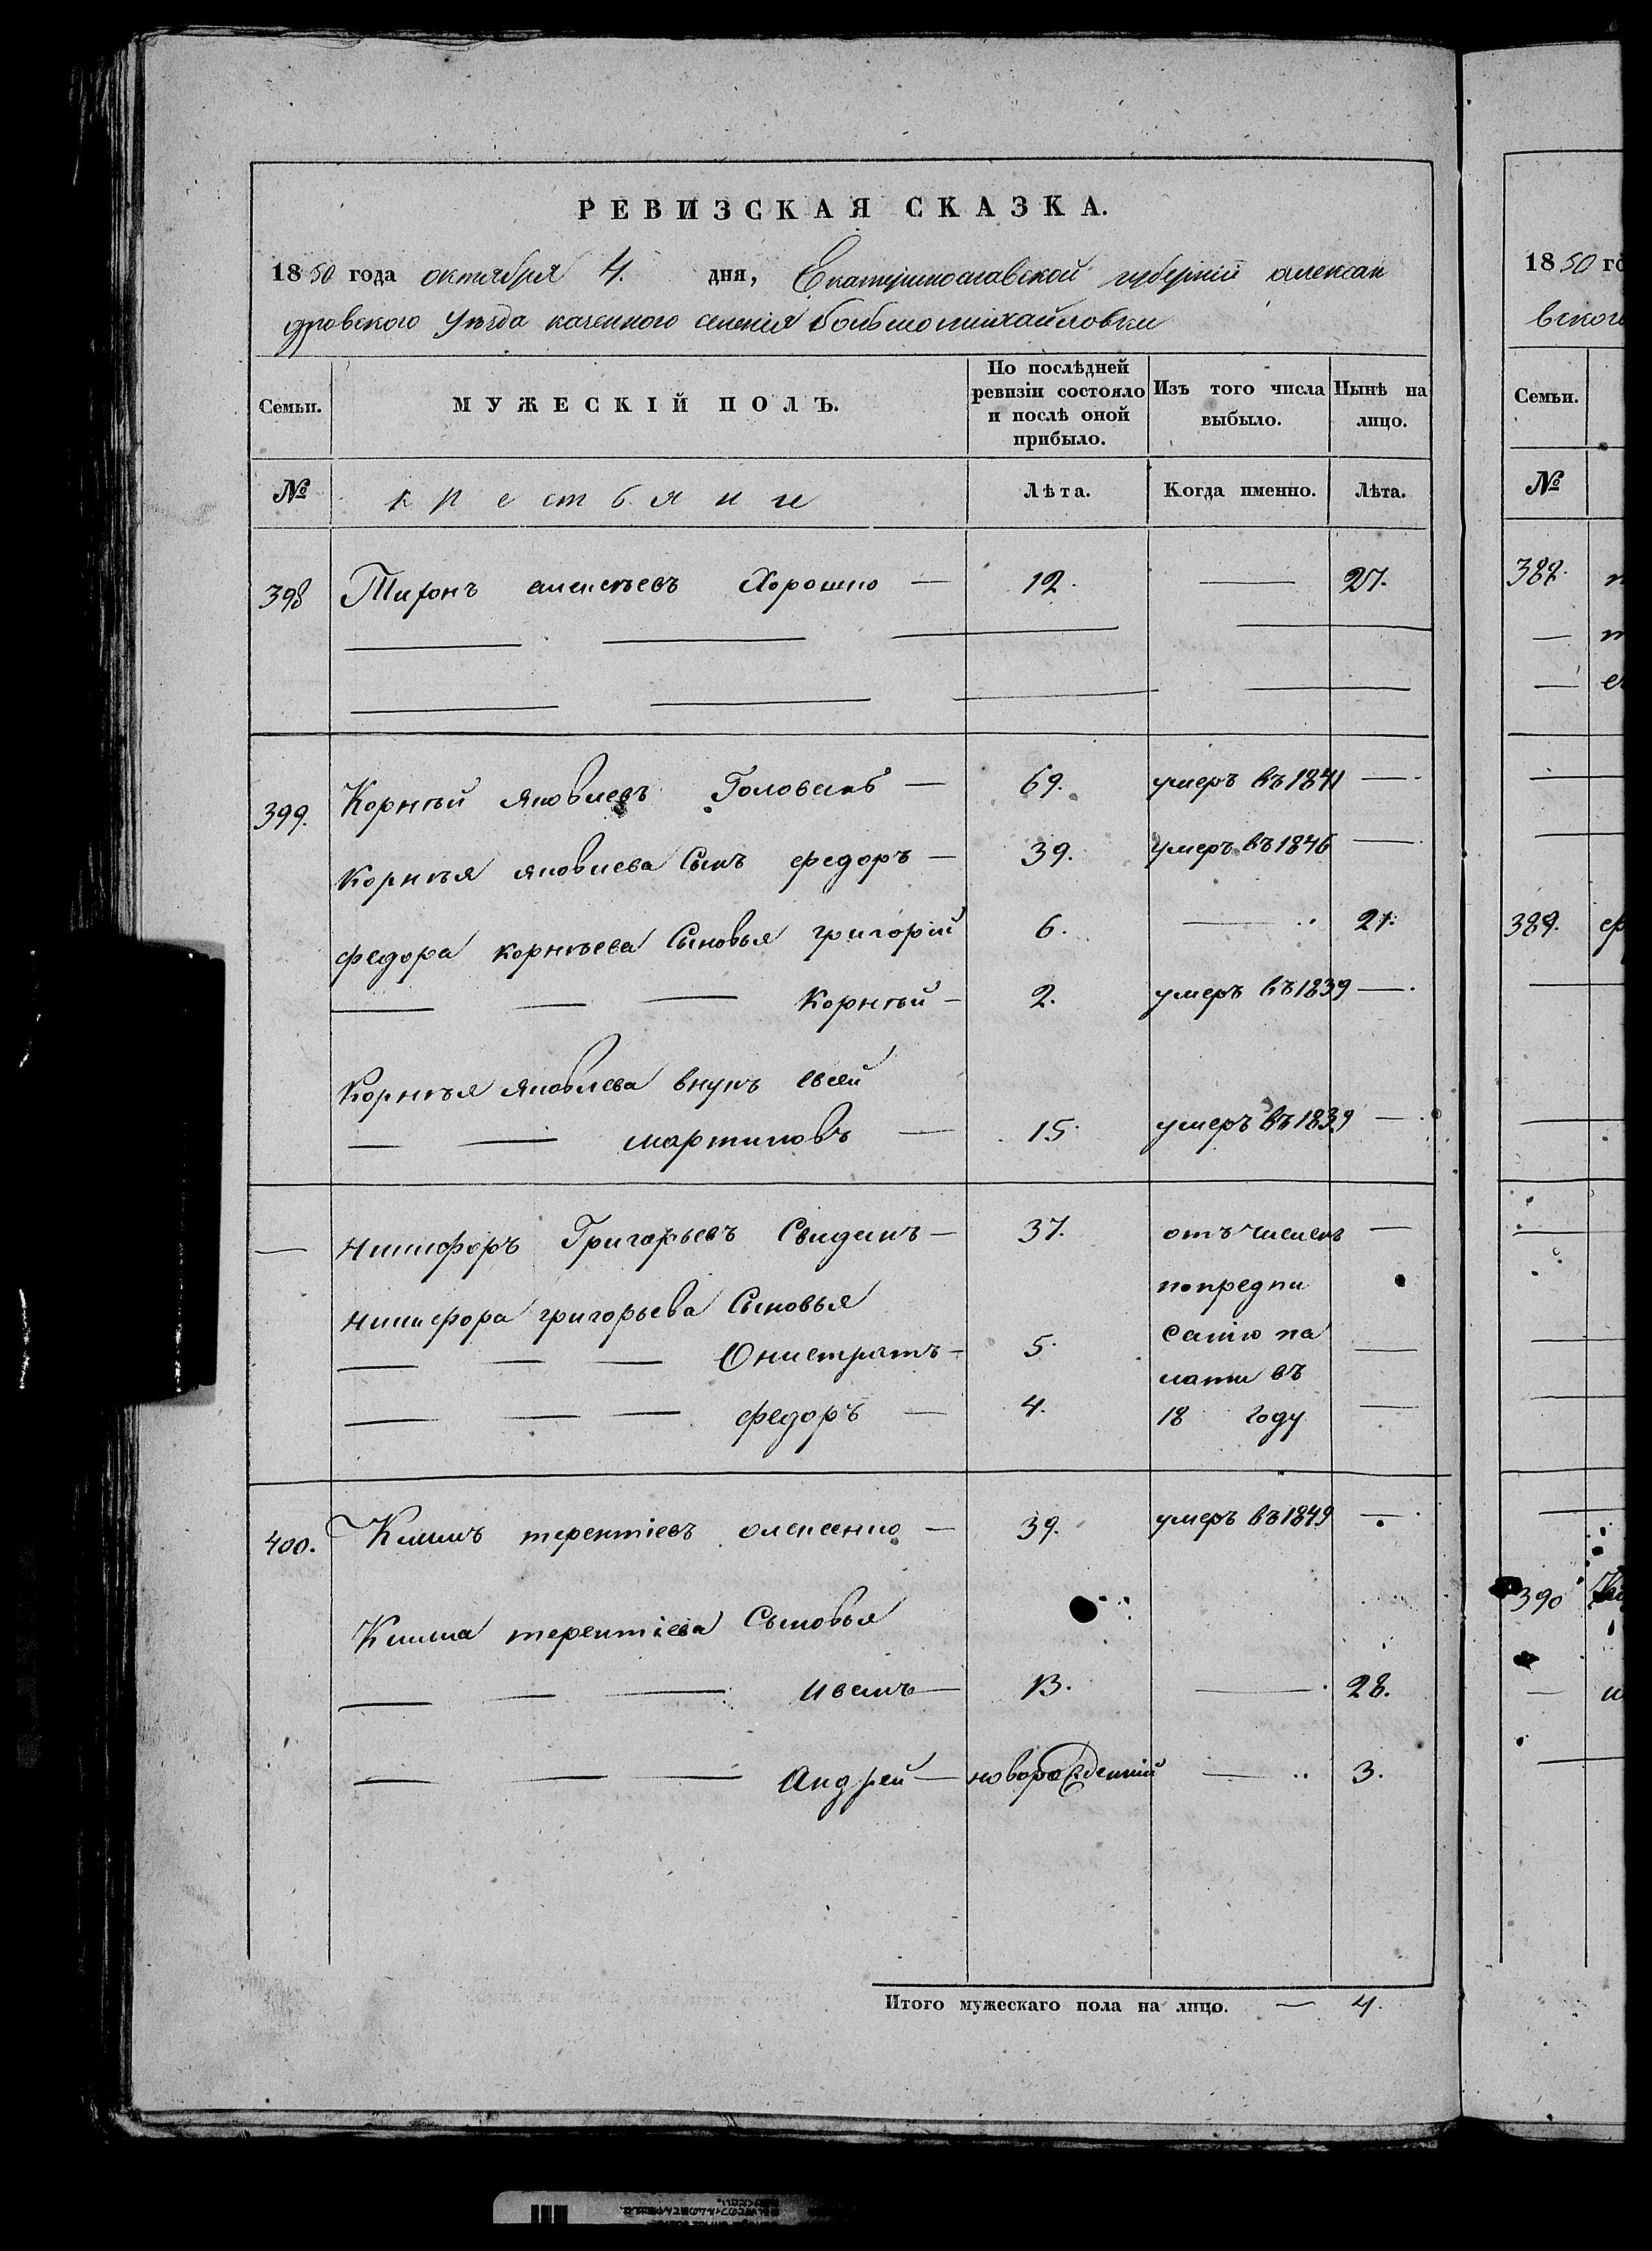 РЕВИЗСКАЯ СКАЗКА.
1850 года октября 4. дня, Екатеринославской губерніи алексан
дровского уѣзда казенного селенія Большомихайловки
Семьи. МУЖЕСКІЙ ПОЛЪ. По послѣдней ревизіи состояло и послѣ оной прибыло. Изъ того числа выбыло. Нынѣ на лицо.
№ крестьяне Лѣта. Когда именно. Лѣта.
398 Тихонъ алексѣевъ Хорошко — 12. — 27.
399. Корнѣй Яковлевъ Головень — 69. умеръ въ 1841 —
Корнѣя яковлева Сынъ федоръ — 39. умеръ въ 1846 —
федора корнѣева Сыновья григорій 6. — 21.
— — — Корнѣй — 2. умеръ въ 1839 —
Корнѣя яковлева внукъ
— — мартиновъ — 15. умеръ въ 1839 —
— Никифоръ Григорьевъ — 37. отъ численъ —
никифора григорьева Сыновья попредпи
— — — Онистратъ — 5. санію па —
латы въ
— — — федоръ — 4. 18 году —
400. Климъ терентіевъ олексенко — 39. умеръ въ 1849 —
Клима терентіева Сыновья
— — — иванъ — 13. — 28.
— — — Андрей — новорожденній — 3.
Итого мужескаго пола на лицо. — 4.
1850 го
вского
Семьи.
№
389.
390